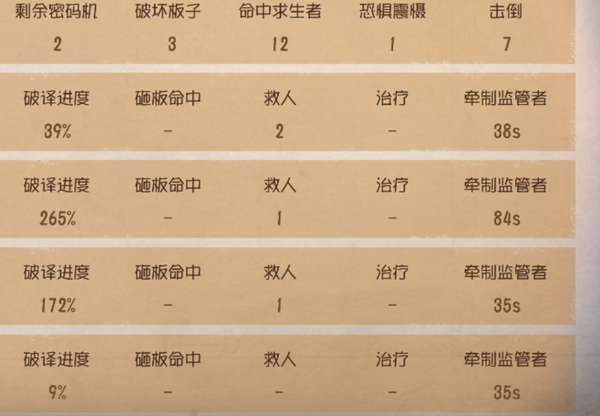 剩余密码机 破坏板子 命中求生者 恐惧震慑 击倒
2 3 12 1 7
破译进度 砸板命中 救人 治疗 牵制监管者
39% - 2 - 38s
破译进度 砸板命中 救人 治疗 牵制监管者
265% - 1 - 84s
破译进度 砸板命中 救人 治疗 牵制监管者
172% - 1 - 35s
破译进度 砸板命中 救人 治疗 牵制监管者
9% - - - 35s